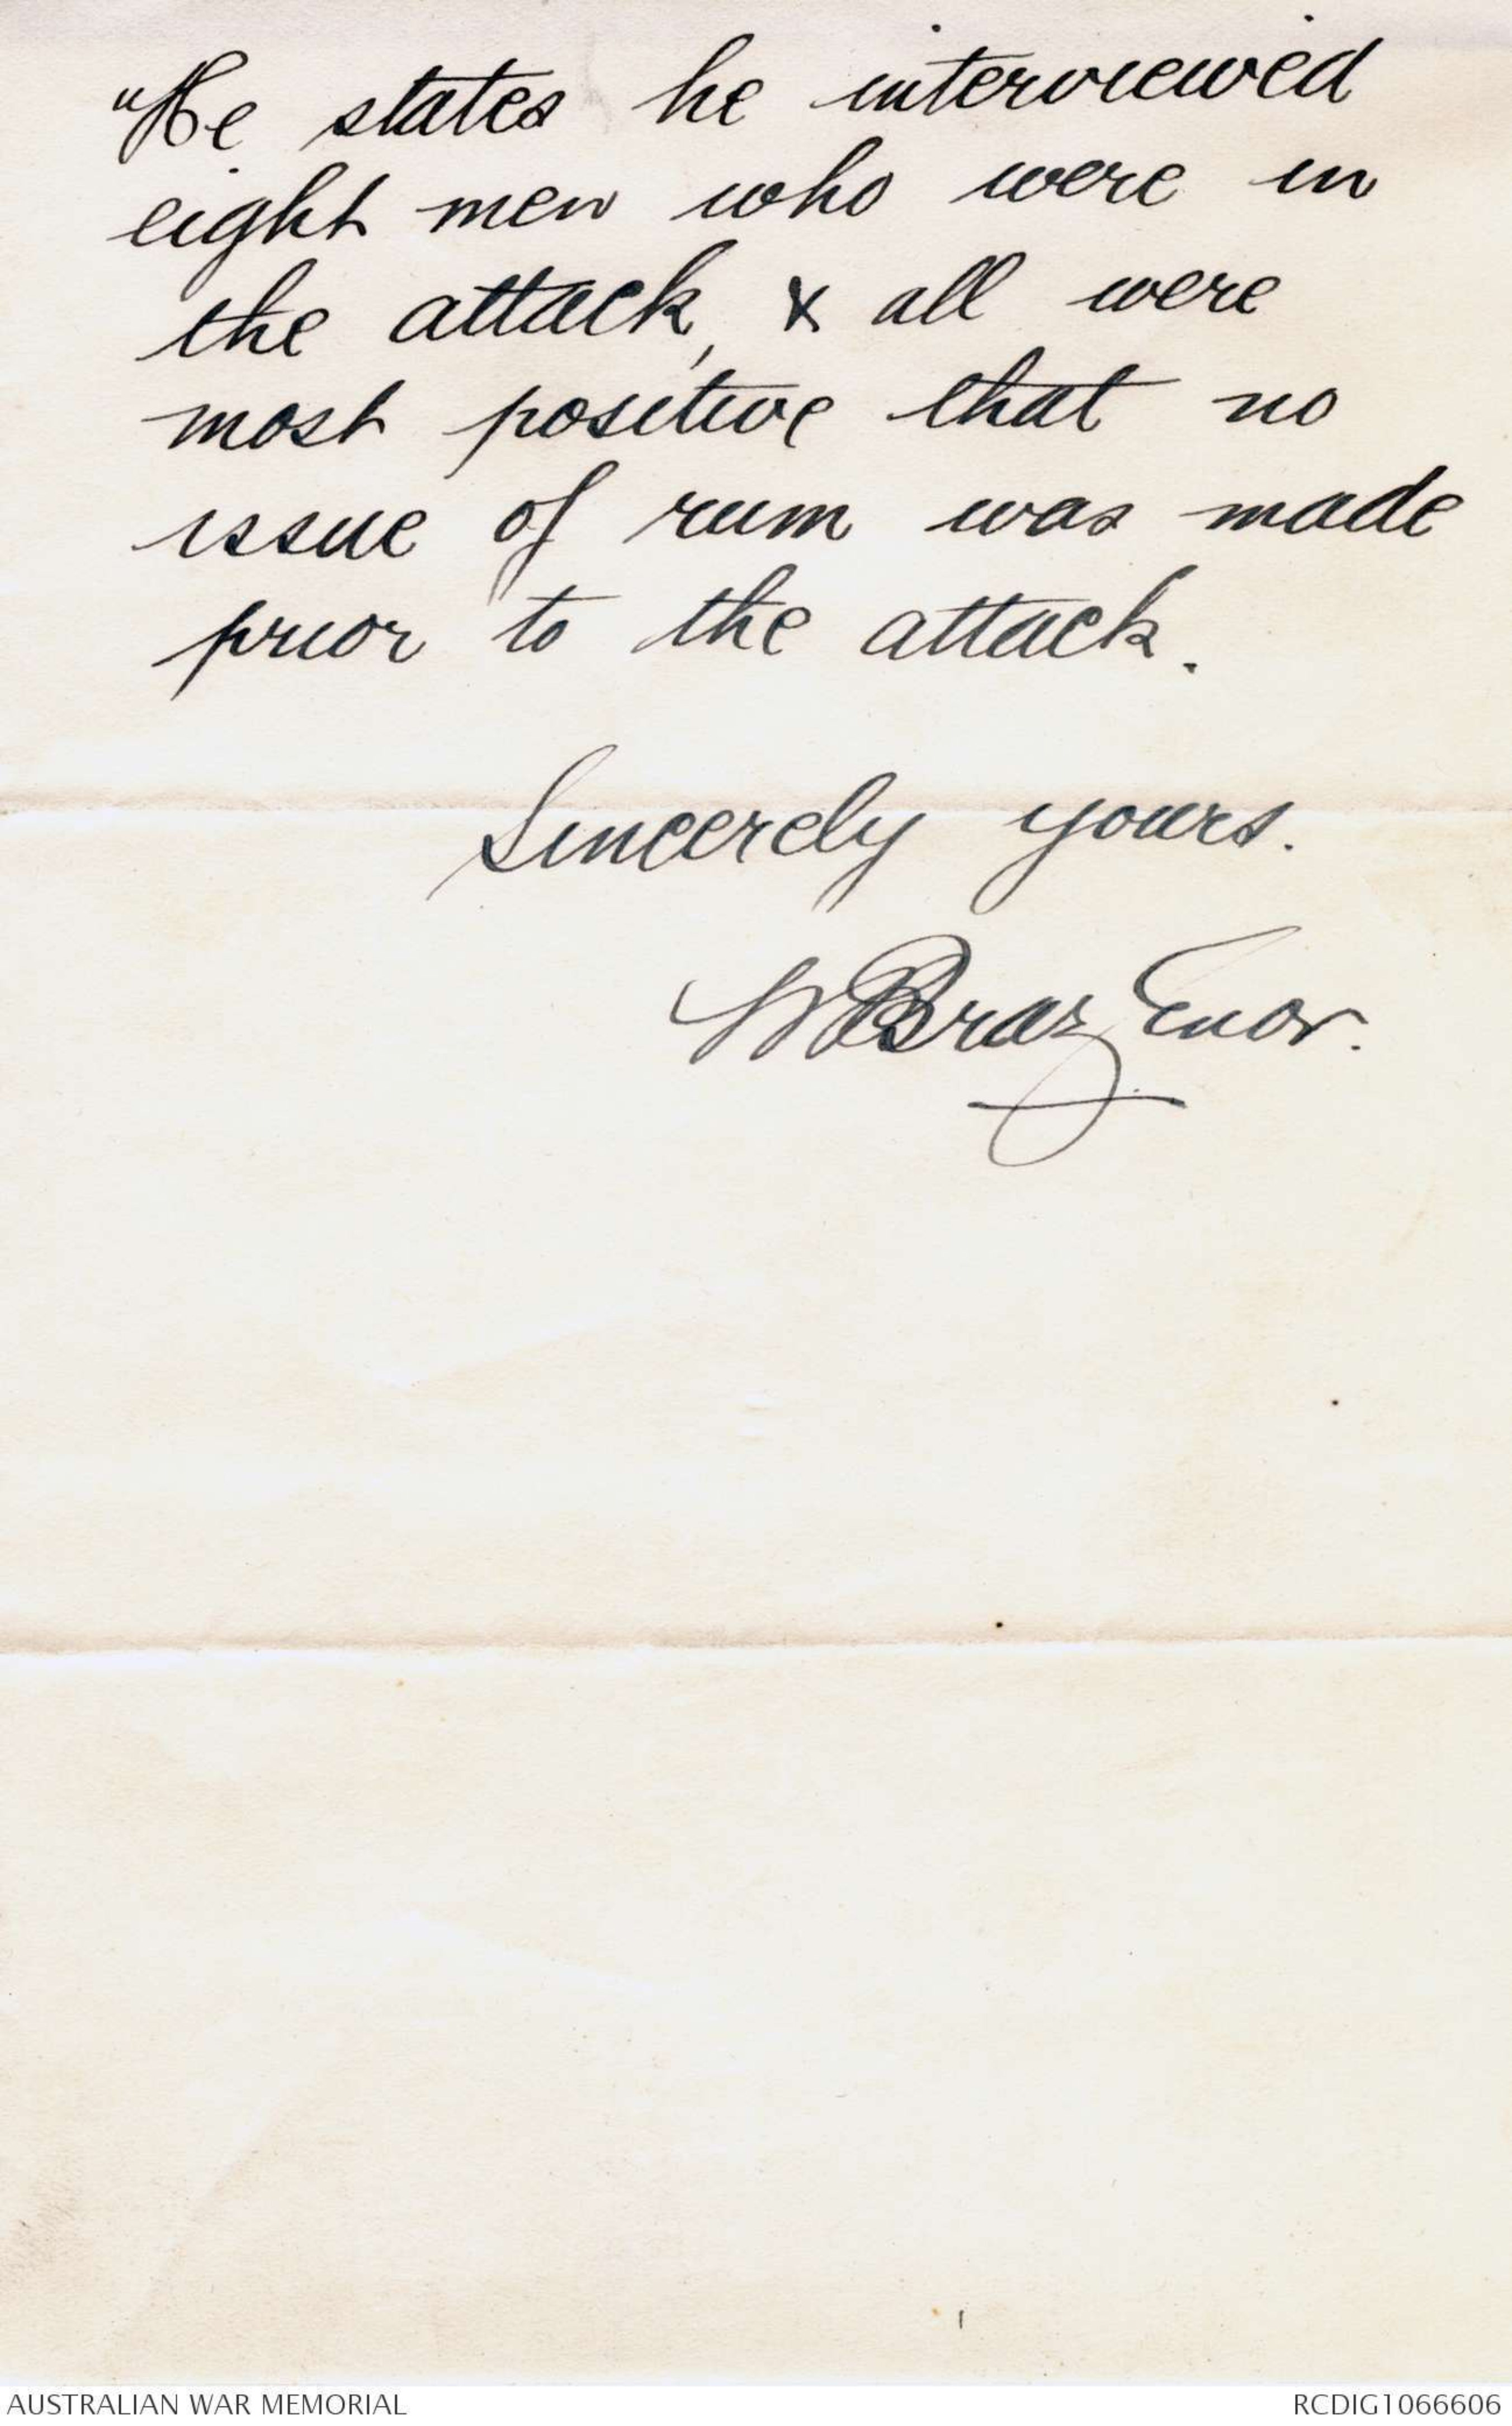 "He states he interviewed
eight men who were in
the attack, & all were
most positive that no
issue of rum was made
prior to the attack.
Sincerely yours.
W Brazenor.
AUSTRALIAN WAR MEMORIAL
RCDIG1066606